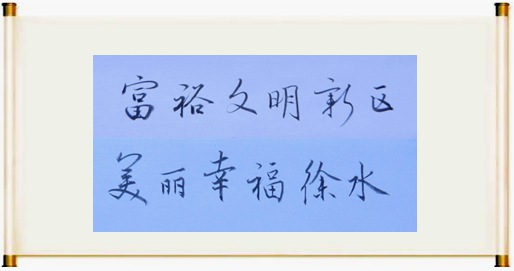 富裕文明新区
美丽幸福徐水